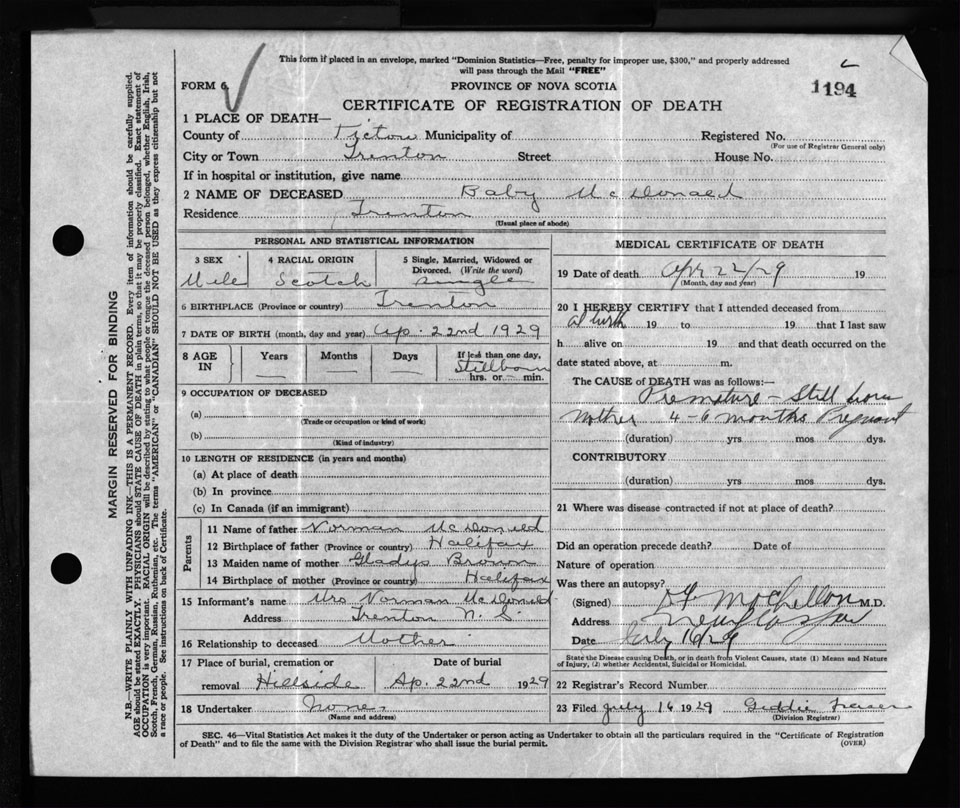 This form if placed in an envelope, marked "Dominion Statistics—Free, penalty for improper use, $300," and properly addressed
will pass through the Mail "FREE"
FORM 6.
PROVINCE OF NOVA SCOTIA
1194
CERTIFICATE OF REGISTRATION OF DEATH
1 PLACE OF DEATH—
County of Pictou Municipality of Registered No.
(For use of Registrar General only)
City or Town Trenton Street House No.
If in hospital or institution, give name
2 NAME OF DECEASED Baby McDonald
Residence Trenton
(Usual place of abode)
PERSONAL AND STATISTICAL INFORMATION
3 SEX 4 RACIAL ORIGIN 5 Single, Married, Widowed or
Divorced. (Write the word)
Male Scotch Single
6 BIRTHPLACE (Province or country) Trenton
7 DATE OF BIRTH (month, day and year) Ap. 22nd 1929
8 AGE IN Years Months Days If less than one day,
Stillborn
hrs. or min.
9 OCCUPATION OF DECEASED
(a)
(Trade or occupation or kind of work)
(b)
(Kind of industry)
10 LENGTH OF RESIDENCE (in years and months)
(a) At place of death
(b) In province
(c) In Canada (if an immigrant)
Parents
11 Name of father Norman McDonald
12 Birthplace of father (Province or country) Halifax
13 Maiden name of mother Gladys Brown
14 Birthplace of mother (Province or country) Halifax
15 Informant's name Mrs Norman McDonald
Address Trenton N. S.
16 Relationship to deceased Mother
17 Place of burial, cremation or Date of burial
removal Hillside Ap. 22nd 1929
18 Undertaker None
(Name and address)
MEDICAL CERTIFICATE OF DEATH
19 Date of death Apr 22/29 19
(Month, day and year)
20 I HEREBY CERTIFY that I attended deceased from
at birth 19 to 19 that I last saw
h alive on 19 and that death occurred on the
date stated above, at m.
The CAUSE of DEATH was as follows:—
Premature - Still born
Mother 4-6 months Pregnant
(duration) yrs mos dys.
CONTRIBUTORY
(duration) yrs mos dys.
21 Where was disease contracted if not at place of death?
Did an operation precede death? Date of
Nature of operation
Was there an autopsy?
(Signed) M.D.
Address New Glasgow
Date July 16/29
State the Disease causing Death, or in death from Violent Causes, state (1) Means and Nature
of Injury, (2) whether Accidental, Suicidal or Homicidal.
22 Registrar's Record Number
23 Filed July 16 1929 Fraser
(Division Registrar)
SEC. 46—Vital Statistics Act makes it the duty of the Undertaker or person acting as Undertaker to obtain all the particulars required in the "Certificate of Registration
of Death" and to file the same with the Division Registrar who shall issue the burial permit.
(OVER)
MARGIN RESERVED FOR BINDING
N.B.—WRITE PLAINLY WITH UNFADING INK—THIS IS A PERMANENT RECORD. Every item of information should be carefully supplied.
AGE should be stated EXACTLY. PHYSICIANS should STATE CAUSE OF DEATH in plain terms, so that it may be properly classified. Exact statement of
OCCUPATION is very important. RACIAL ORIGIN will be described by stating to what people or tongue the deceased person belonged, whether English, Irish,
Scotch, French, German, Russian, Ruthenian, etc. The terms "AMERICAN" or "CANADIAN" SHOULD NOT BE USED as they express citizenship but not
a race or people. See instructions on back of Certificate.